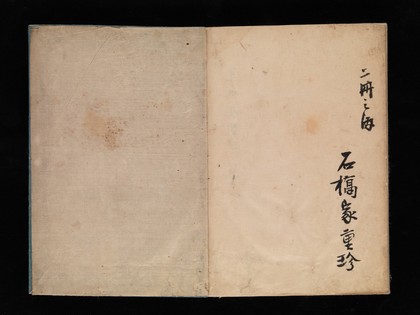 二冊之内
石橋家重珍